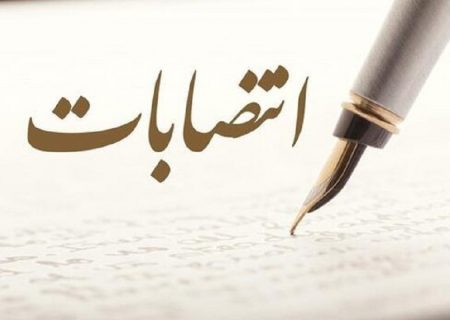 انتصابات